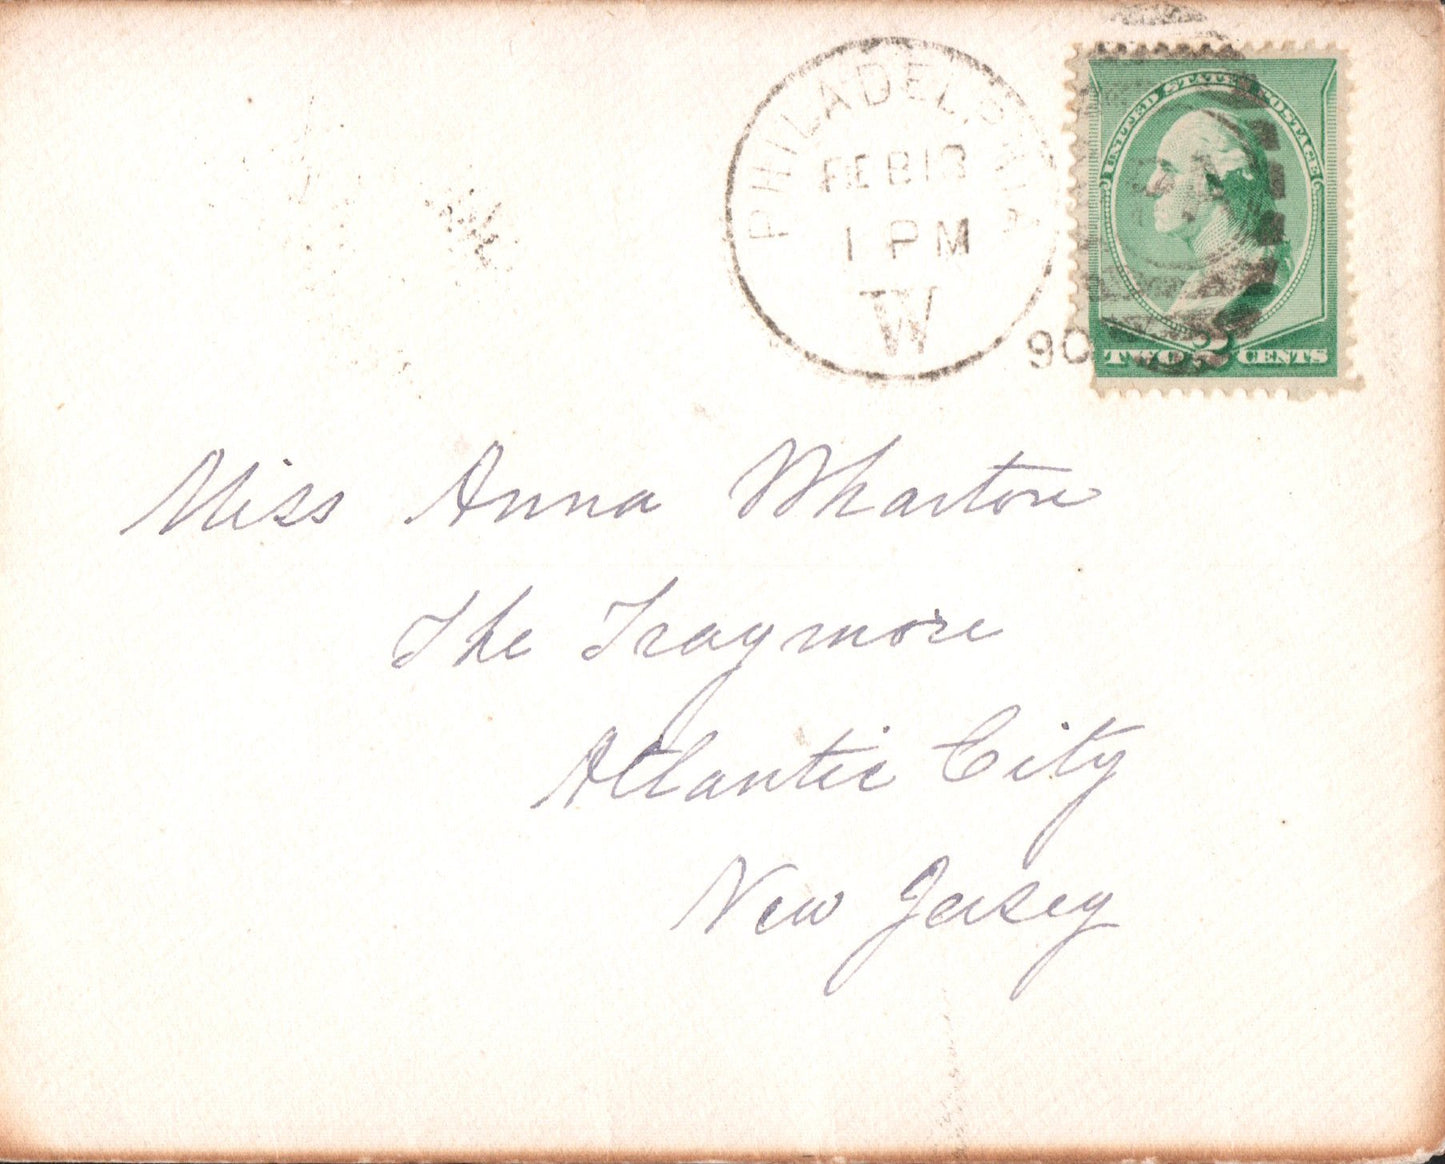 PHILADELPHIA
FEB 13
1 PM
W
90
UNITED STATES POSTAGE
TWO 2 CENTS
Miss Anna Wharton
The Traymore
Atlantic City
New Jersey